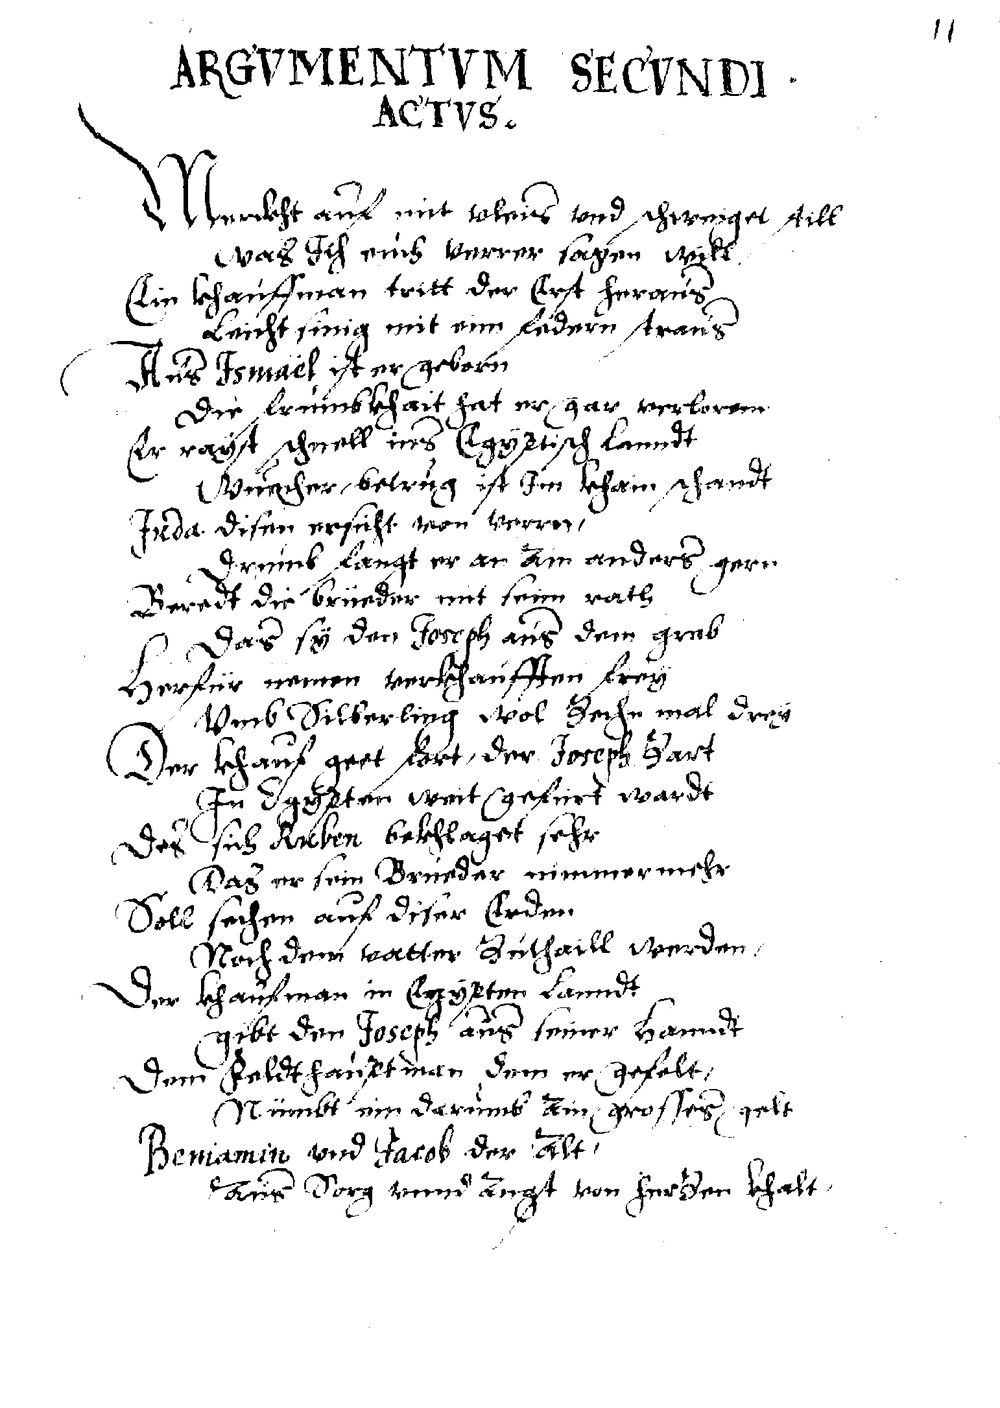 11
ARGVMENTVM SECVNDI
ACTVS.
Merckht auf mit vleis vnd schweiget still
Was Ich euch verrer sagen will
Ein khauffman tritt der Erst heraus
Leicht sinig mit eim federn straus
Aus Ismael ist er geborn
Die frümbkhait hat er gar verlorenn
Er rayst schnell ins Egyptisch lanndt
Wuecher, betrug ist Im khain schandt
Juda disen ersicht von verrn,
Drumb fangt er an Ain anders gern
Beredt die brüeder mit seim rath
Das sy den Joseph aus dem grab
Herfür nemen verkhaufften frey
Vmb Silberling wol Zehn mal drey
Der khauf geet fort, der Joseph Zart
In Egypten weit gefürt wardt
Des sich Ruben bekhlaget sehr
Das er sein Brueder nimmermehr
Soll sechen auf diser Erden
Noch dem vatter Zuthaill werden,
Der khaufman in Egypten lanndt
gibt den Joseph aus seiner hanndt
Dem Feldthauptman dem er gefelt,
Nümbt ein darumb Ain grosses gelt
Beniamin vnd Jacob der Alt,
Aus Sorg vnnd Angst von herZen khalt,